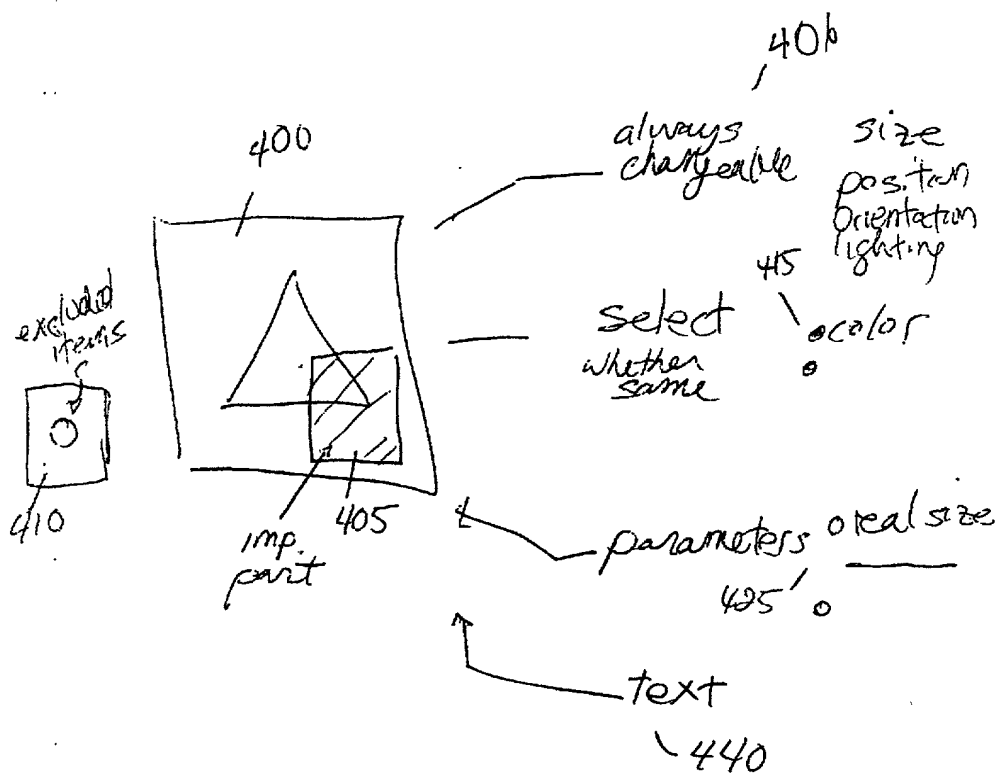 406
always
changeable
size
position
orientation
lighting
400
excluded
items
415
select
whether
same
color
410
405
imp.
part
parameters
real size
425
text
440